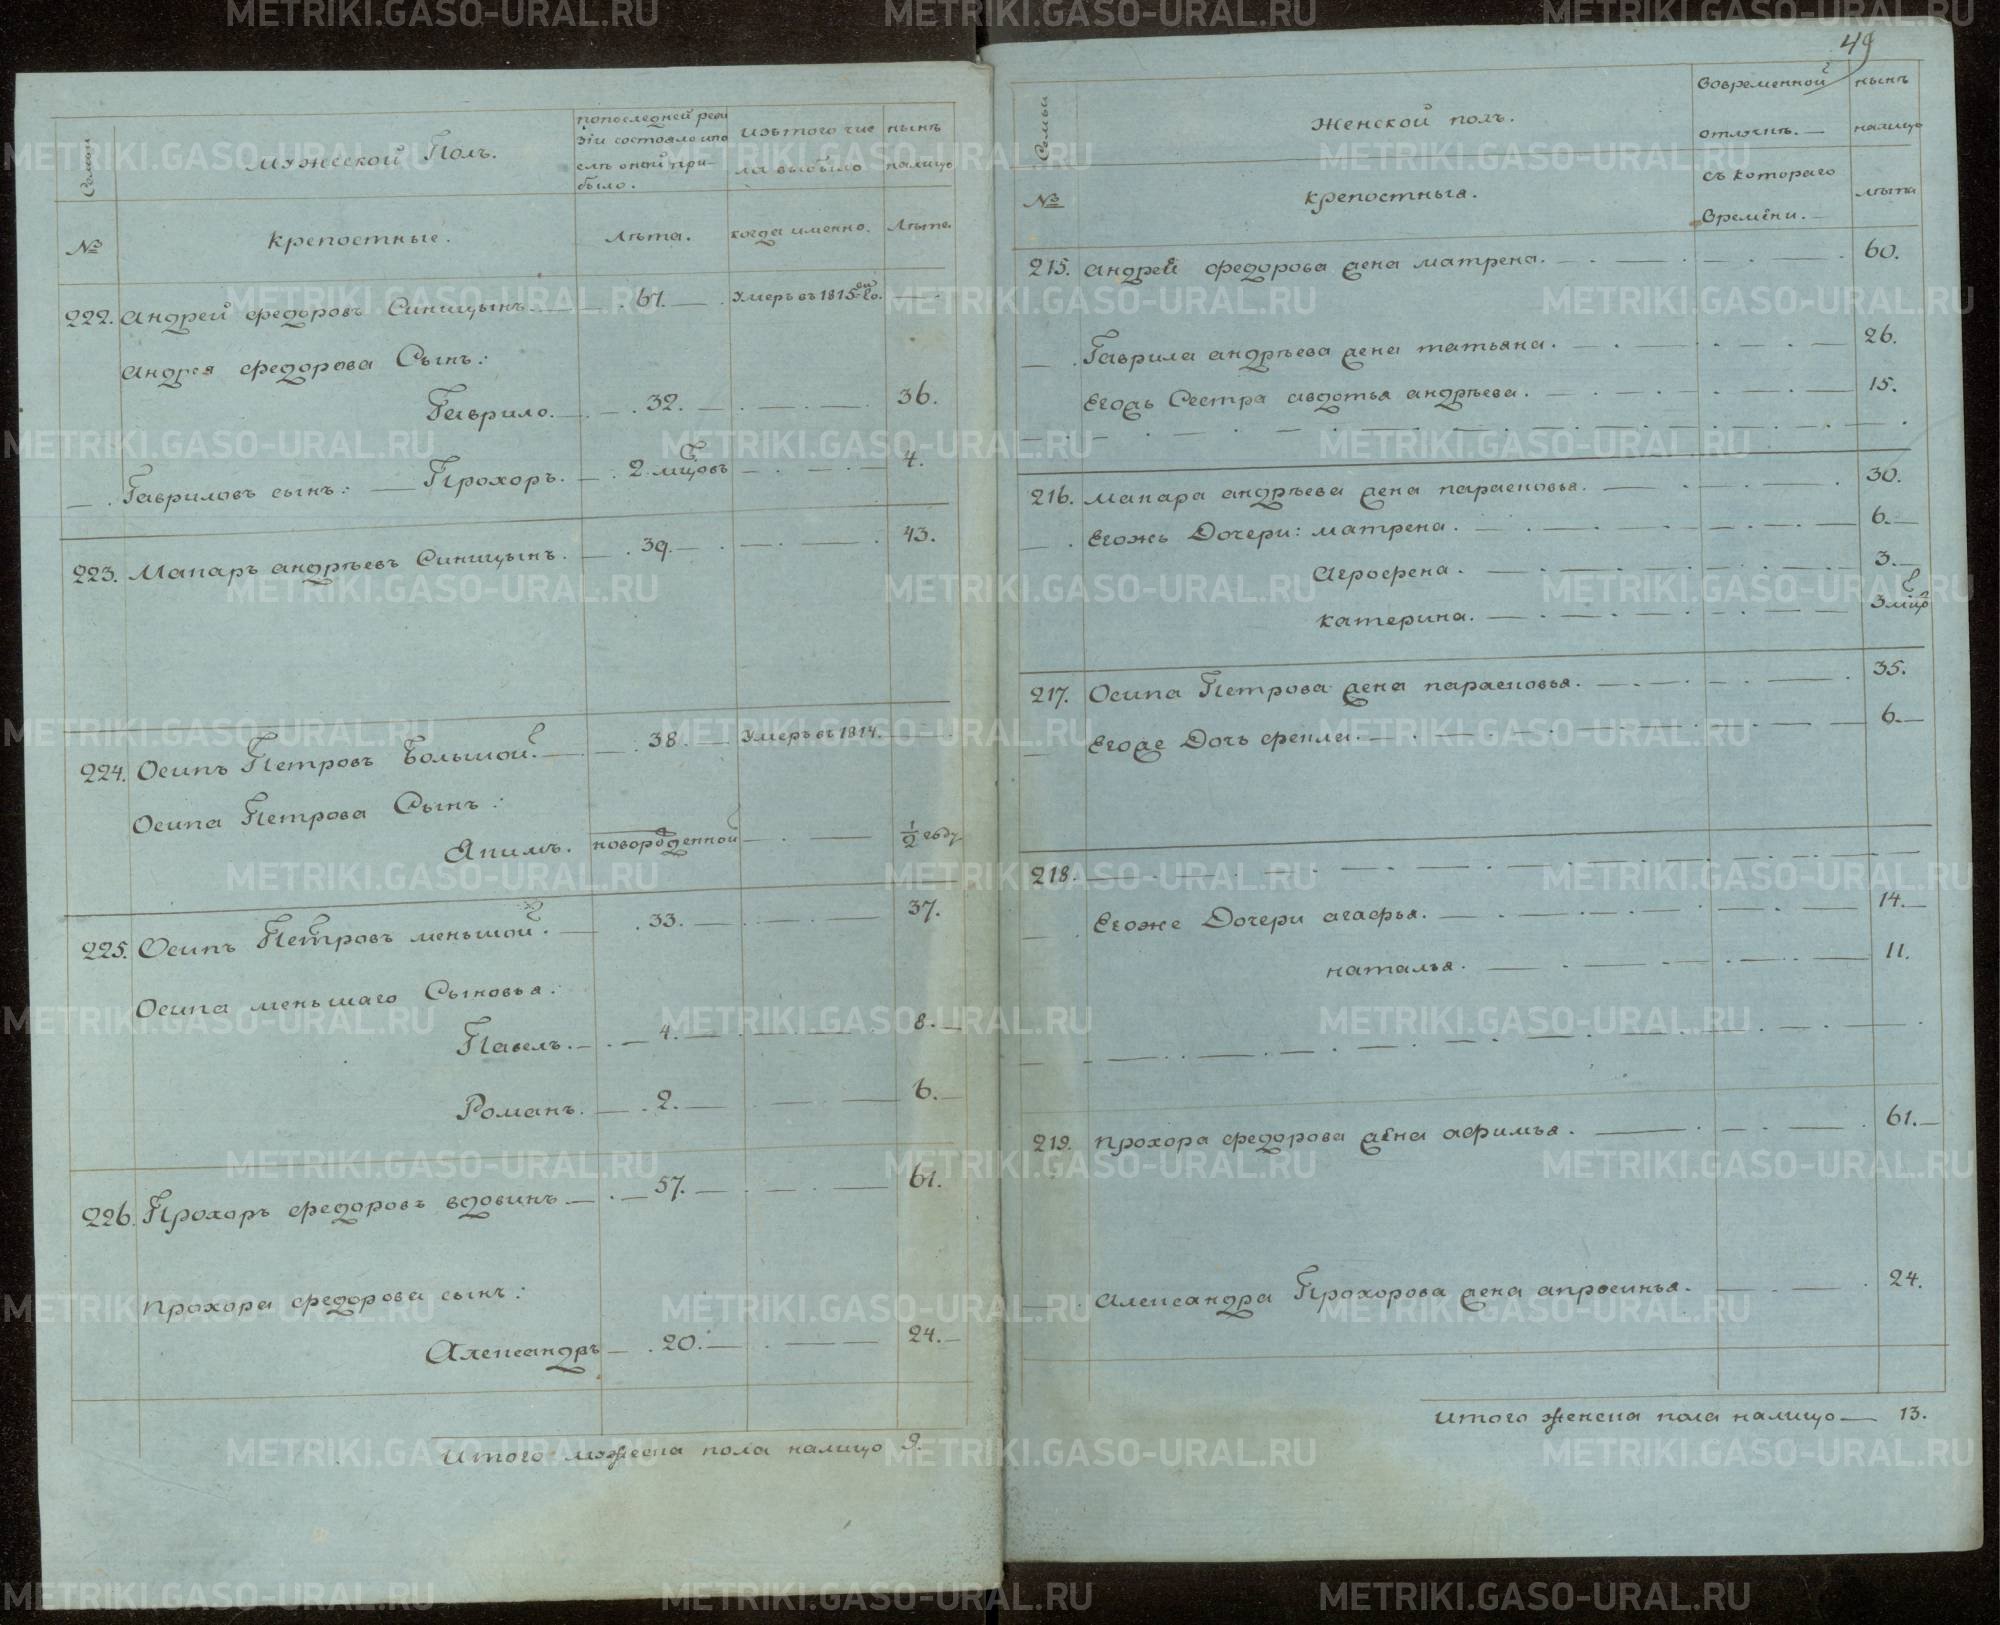 Семьи
№
мужеской Полъ.
крепостные.
попоследней реви
зiи состояло ипо
слѣ оной при-
было.
Лѣта.
изътого чис
ла выбыло
когда именно.
нынѣ
налицо
Лѣта.
222. андрей федоровъ Синицынъ. 67. Умеръ въ 1815. —
андрея федорова Сынъ:
Гаврило. 32. 36.
Гавриловъ сынъ: Прохоръ. 2. мцовъ 4.
223. Макаръ андрѣевъ Синицынъ. 39. 43.
224. Осипъ Петровъ Большой. 38. Умеръ въ 1814. —
Осипа Петрова Сынъ:
Якимъ. новорожденной ½ году
225. Осипъ Петровъ меньшой. 33. 37.
Осипа меньшаго Сыновья:
Павелъ. 4. 8.
Романъ. 2. 6.
226. Прохоръ федоровъ вдовинъ 57. 61.
прохора федорова сынъ:
Александръ 20. 24.
Итого мужеска пола налицо 9.
49
Семьи
№
Женской полъ.
крепостныя.
вовременной
отлучкѣ.
съ котораго
времени.
нынѣ
налицо
лѣта
215. андрей федорова жена матрена. 60.
Гаврила андрѣева жена татьяна. 26.
Егожь Сестра авдотья андрѣева. 15.
216. макара андрѣева жена парасковья. 30.
Егожь Дочери: матрена. 6.
Агрофена. 3.
катерина. 3 мцр
217. Осипа Петрова жена парасковья. 35.
Егоже Дочь фекла. 6.
218.
Егоже Дочери агафья. 14.
наталья. 11.
219. прохора федорова жена афимья. 61.
александра Прохорова жена апросинья. 24.
итого женска пола налицо 13.